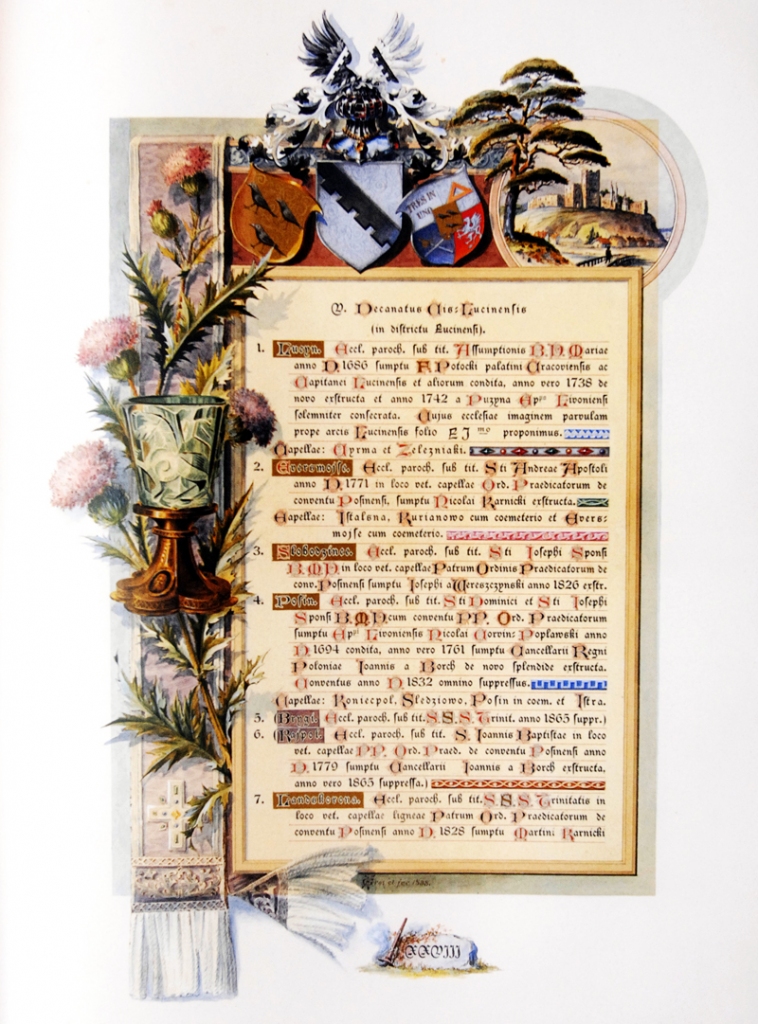 TRES IN
UNO
V. Decanatus Cis-Lucinensis
(in districtu Lucinensi).
1. Lucyn. Eccl. paroch. sub tit. Assumptionis B.V. Mariae
anno D. 1686 sumptu F. Potocki palatini Cracoviensis ac
Capitanei Lucinensis et aliorum condita, anno vero 1738 de
novo exstructa et anno 1742 a Puzyna Eppo Livoniensi
solemniter consecrata. Cujus ecclesiae imaginem parvulam
prope arcis Lucinensis folio proponimus.
Capellae: Cyrma et Zelezniaki.
2. Eversmojse. Eccl. paroch. sub tit. Sti Andreae Apostoli
anno D. 1771 in loco vet. capellae Ord. Praedicatorum de
conventu Posinensi, sumptu Nicolai Karnicki exstructa.
Capellae: Istalsna, Kurianowo cum coemeterio et Evers-
mojse cum coemeterio.
3. Slobodzince. Eccl. paroch. sub tit. Sti Josephi Sponsi
B.M.V. in loco vet. capellae Patrum Ordinis Praedicatorum de
conv. Posinensi sumptu Josephi a Wereszczynski anno 1826 exstr.
4. Posin. Eccl. paroch. sub tit. Sti Dominici et Sti Josephi
Sponsi B.M.V. cum conventu PP. Ord. Praedicatorum
sumptu Eppi Livoniensis Nicolai Corvin-Poplawski anno
D. 1694 condita, anno vero 1761 sumptu Cancellarii Regni
Poloniae Joannis a Borch de novo splendide exstructa.
Conventus anno D. 1832 omnino suppressus.
Capellae: Koniecpol, Sledziowo, Posin in coem. et Istra.
5. (Brygi. Eccl. paroch. sub tit. S.S.S. Trinit. anno 1865 suppr.)
6. (Raypol. Eccl. paroch. sub tit. S. Joannis Baptistae in loco
vet. capellae PP. Ord. Praed. de conventu Posinensi anno
D. 1779 sumptu Cancellarii Joannis a Borch exstructa,
anno vero 1865 suppressa.)
7. Landskorona. Eccl. paroch. sub tit. S.S.S. Trinitatis in
loco vet. capellae ligneae Patrum Ord. Praedicatorum de
conventu Posinensi anno D. 1828 sumptu Martini Karnicki
XXVIII